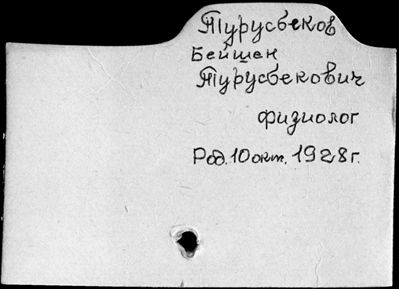 Турусбеков
Бейшен
Турусбекович
физиолог
Род. 10 окт. 1928 г.